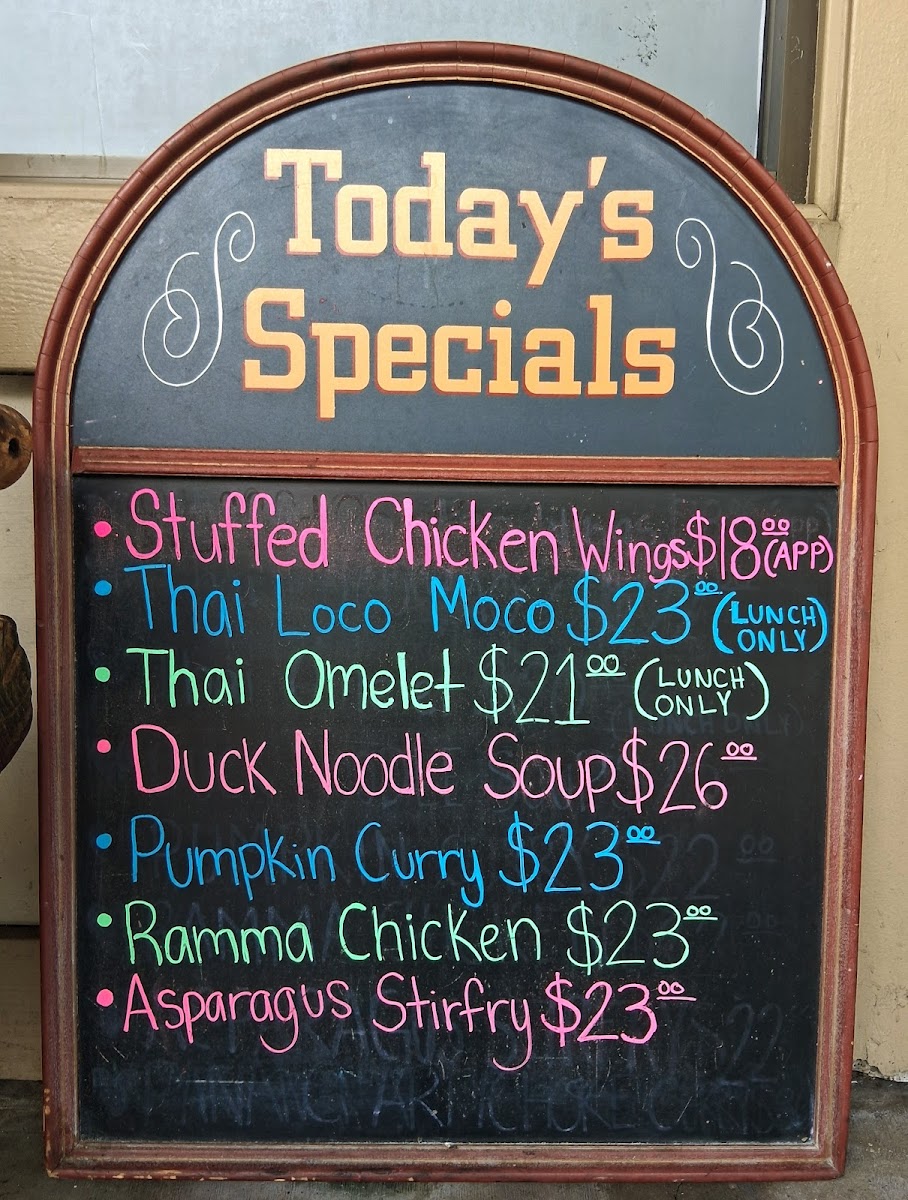 Today's
Specials
• Stuffed Chicken Wings $18.00 (APP)
• Thai Loco Moco $23.00 (LUNCH ONLY)
• Thai Omelet $21.00 (LUNCH ONLY)
• Duck Noodle Soup $26.00
• Pumpkin Curry $23.00
• Ramma Chicken $23.00
• Asparagus Stirfry $23.00